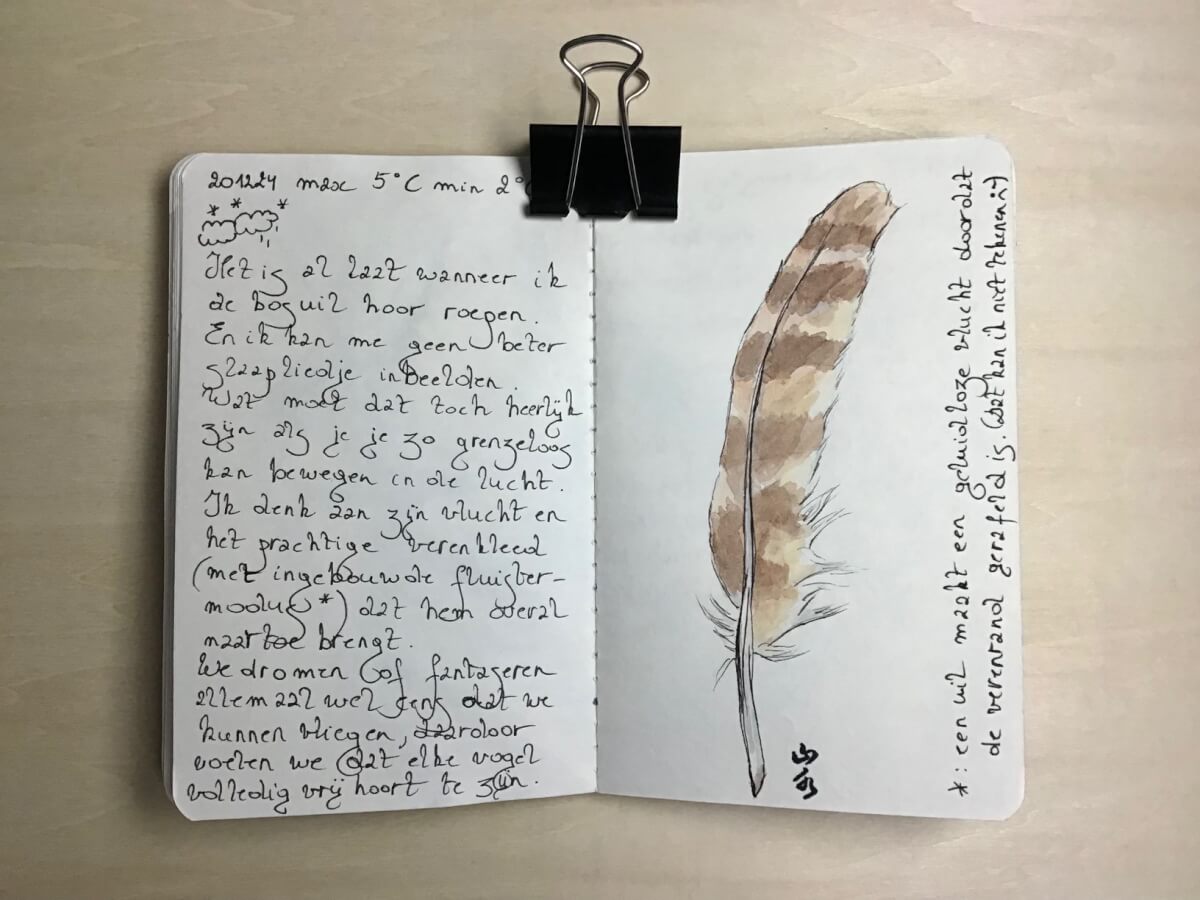 201224 max 5°C min 2°
Het is al laat wanneer ik
de bosuil hoor roepen.
En ik kan me geen beter
slaapliedje inbeelden.
Wat moet dat toch heerlijk
zijn als je je zo grenzeloos
kan bewegen in de lucht.
Ik denk aan zijn vlucht en
het prachtige verenkleed
(met ingebouwde fluister-
modus*) dat hem overal
naartoe brengt.
We dromen of fantaseren
allemaal wel eens dat we
kunnen vliegen, daardoor
voelen we dat elke vogel
volledig vrij hoort te zijn.
*: een uil maakt een geluidloze vlucht doordat
de verenrand gerafeld is. (Dat kan ik niet tekenen :-)